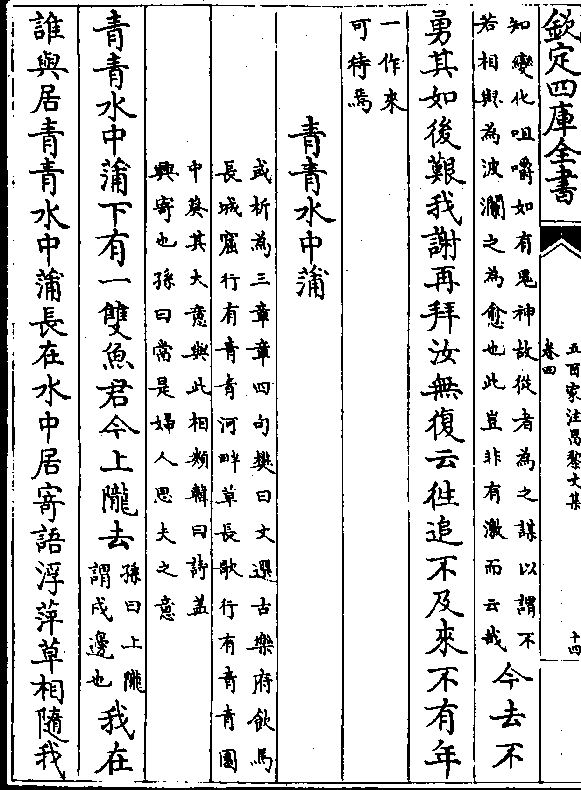 欽定四庫全書
五百家注昌黎文集
卷四
十四
知變化咀嚼如有鬼神故從者為之謀以謂不
若相與為波瀾之為愈也此豈非有激而云哉
今去不
勇其如後艱我謝再拜汝無復云往追不及來不有年
一作來
可待焉
青青水中蒲
或析為三章章四句樊曰文選古樂府飲馬
長城窟行有青青河畔草長歌行有青青園
中葵其大意與此相類韓曰詩蓋
興寄也孫曰當是婦人思夫之意
青青水中蒲下有一雙魚君今上隴去
孫曰上隴
謂戍邊也
我在
誰與居青青水中蒲長在水中居寄語浮萍草相隨我